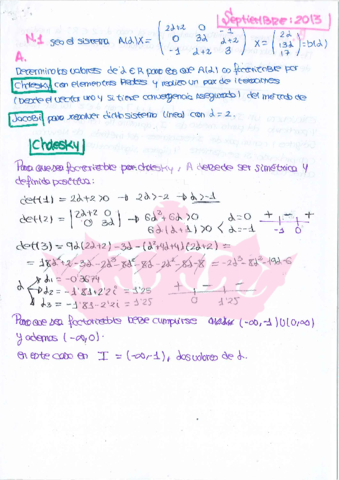 Septiembre: 2013
N.1 sea el sistema A(α)X = (2α+2 0 -1
0 3α α+2
-1 α+2 3) X = (2α
13α
17) = b(α)
A.
Determina los valores de α ∈ R para los que A(α) es factorizable por
Cholesky con elementos Reales y realice un par de iteraciones
(Desde el vector uno y si tiene convergencia asegurada) del metodo de
Jacobi para resolver dicho sistema lineal con α = 2.
Cholesky
Para que sea factorizable por cholesky, A debe de ser simétrica y
definida positiva:
det(1) = 2α+2 >0 → 2α>-2 → α>-1
det(2) = |2α+2 0
0 3α| → 6α²+6α >0
6α(α+1) >0
α=0
α=-1
+ - +
-1 0
det(3) = 9α(2α+2) -3α -(α²+4α+4)(2α+2) =
α1 = -0'3674
α2 = -1'81+2'2i = 1'25
α3 = -1'81-2'2i = 1'25
0 1'25
Para que sea factorizable debe cumplirse (-∞,-1)U(0,∞)
y además (-∞,0).
en este caso en I = (-∞,-1), dos valores de α.